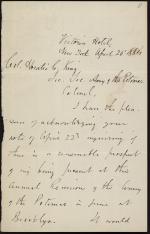 Victoria Hotel,
New York April 26th 1884
Col. Horatio C. King
Sec. Soc. Army of the Potomac
Colonel,
I have the plea-
sure of acknowledging your
note of April 22d inquiring if
there is a reasonable prospect
of my being present at the
Annual Reunion of the Army
of the Potomac in June at
Brooklyn. It would